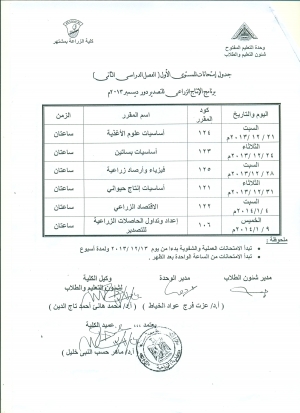 وحدة التعليم المفتوح
شئون التعليم والطلاب
كلية الزراعة بمشتهر
جدول إمتحانات المستوى الأول (الفصل الدراسى الثانى)
برنامج الإنتاج الزراعى للتصدير دور ديسمبر ٢٠١٣م
اليوم والتاريخ
كود المقرر
اسم المقرر
الزمن
السبت ٢٠١٣/١٢/٢١م
١٢٤
أساسيات علوم الأغذية
ساعتان
الثلاثاء ٢٠١٣/١٢/٢٤م
١٢٣
أساسيات بساتين
ساعتان
السبت ٢٠١٣/١٢/٢٨م
١٢٥
فيزياء وأرصاد زراعية
ساعتان
الثلاثاء ٢٠١٣/١٢/٣١م
١٢١
أساسيات إنتاج حيوانى
ساعتان
السبت ٢٠١٤/١/٤م
١٢٢
الاقتصاد الزراعي
ساعتان
الخميس ٢٠١٤/١/٩م
١٠٦
إعداد وتداول الحاصلات الزراعية للتصدير
ساعتان
ملحوظة :
تبدأ الامتحانات العملية والشفوية بدءا من يوم ٢٠١٣/١٢/١٣ ولمدة أسبوع
تبدأ الامتحانات من الساعة الواحدة بعد الظهر .
مدير شئون الطلاب
مدير الوحدة
وكيل الكلية
لشئون التعليم والطلاب
(أ.د/ عزت فرج عواد الخياط )
(أ.د/ محمد هانى أحمد تاج الدين )
يعتمد ،،،
عميد الكلية
(أ.د/ ماهر حسب النبى خليل )